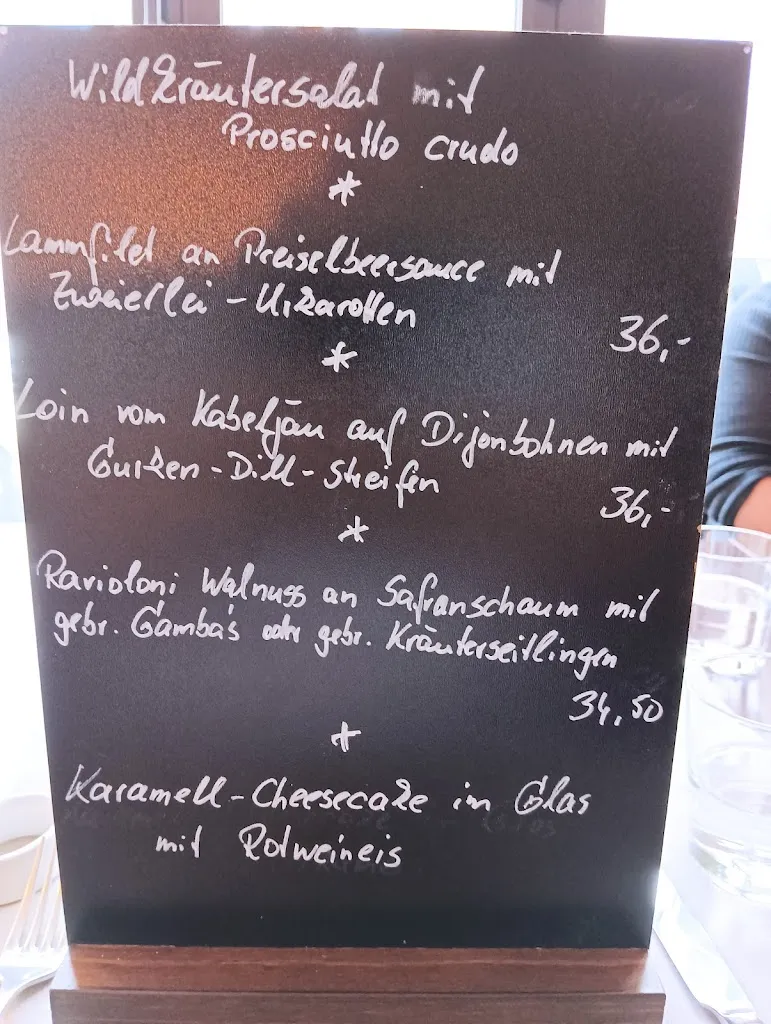 Wildkräutersalat mit
Prosciutto crudo
*
Lammfilet an Preiselbeersauce mit
Zweierlei - Urkarotten
36,-
*
Loin vom Kabeljau auf Dijonbohnen mit
Gurken - Dill - Streifen
36,-
*
Ravioloni Walnuss an Safranschaum mit
gebr. Gamba's oder gebr. Kräuterseitlingen
34,50
*
Karamell - Cheesecake im Glas
mit Rotweineis